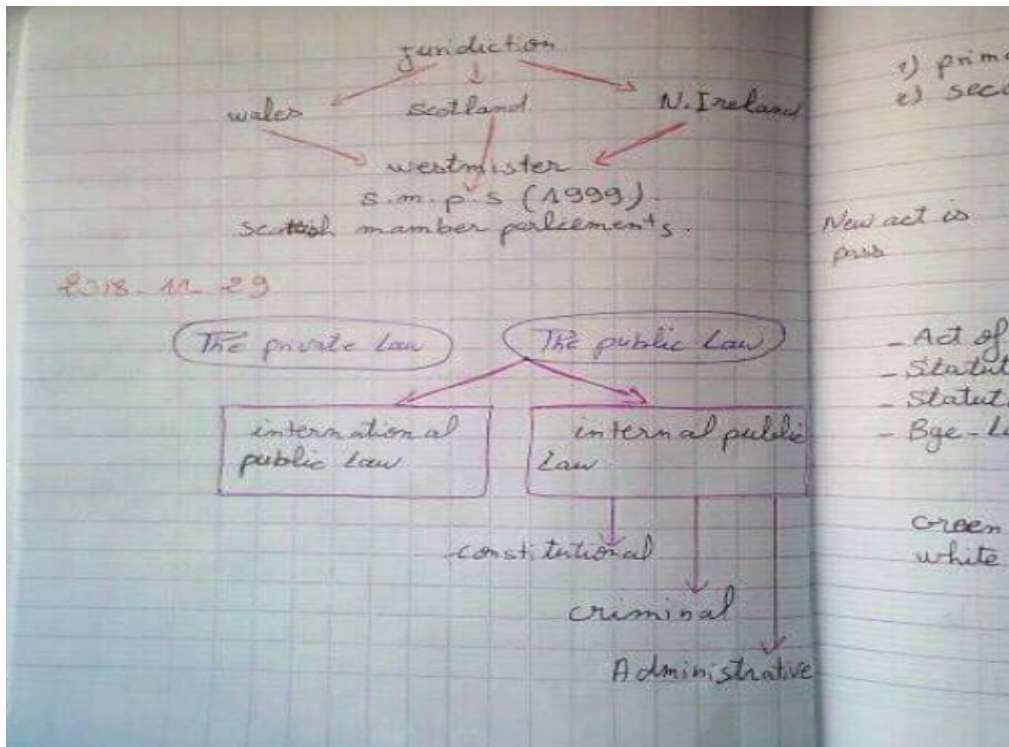 juridiction
wales scotland N. Ireland
westmister
s.m.p.s (1999).
scottish mamber parliements.
2018-11-29
The private Law The public Law
international public Law
internal public Law
constitutional
criminal
Administrative
1)
2)
New act is
pass
- Act of
-
-
- Bye-
Green
white